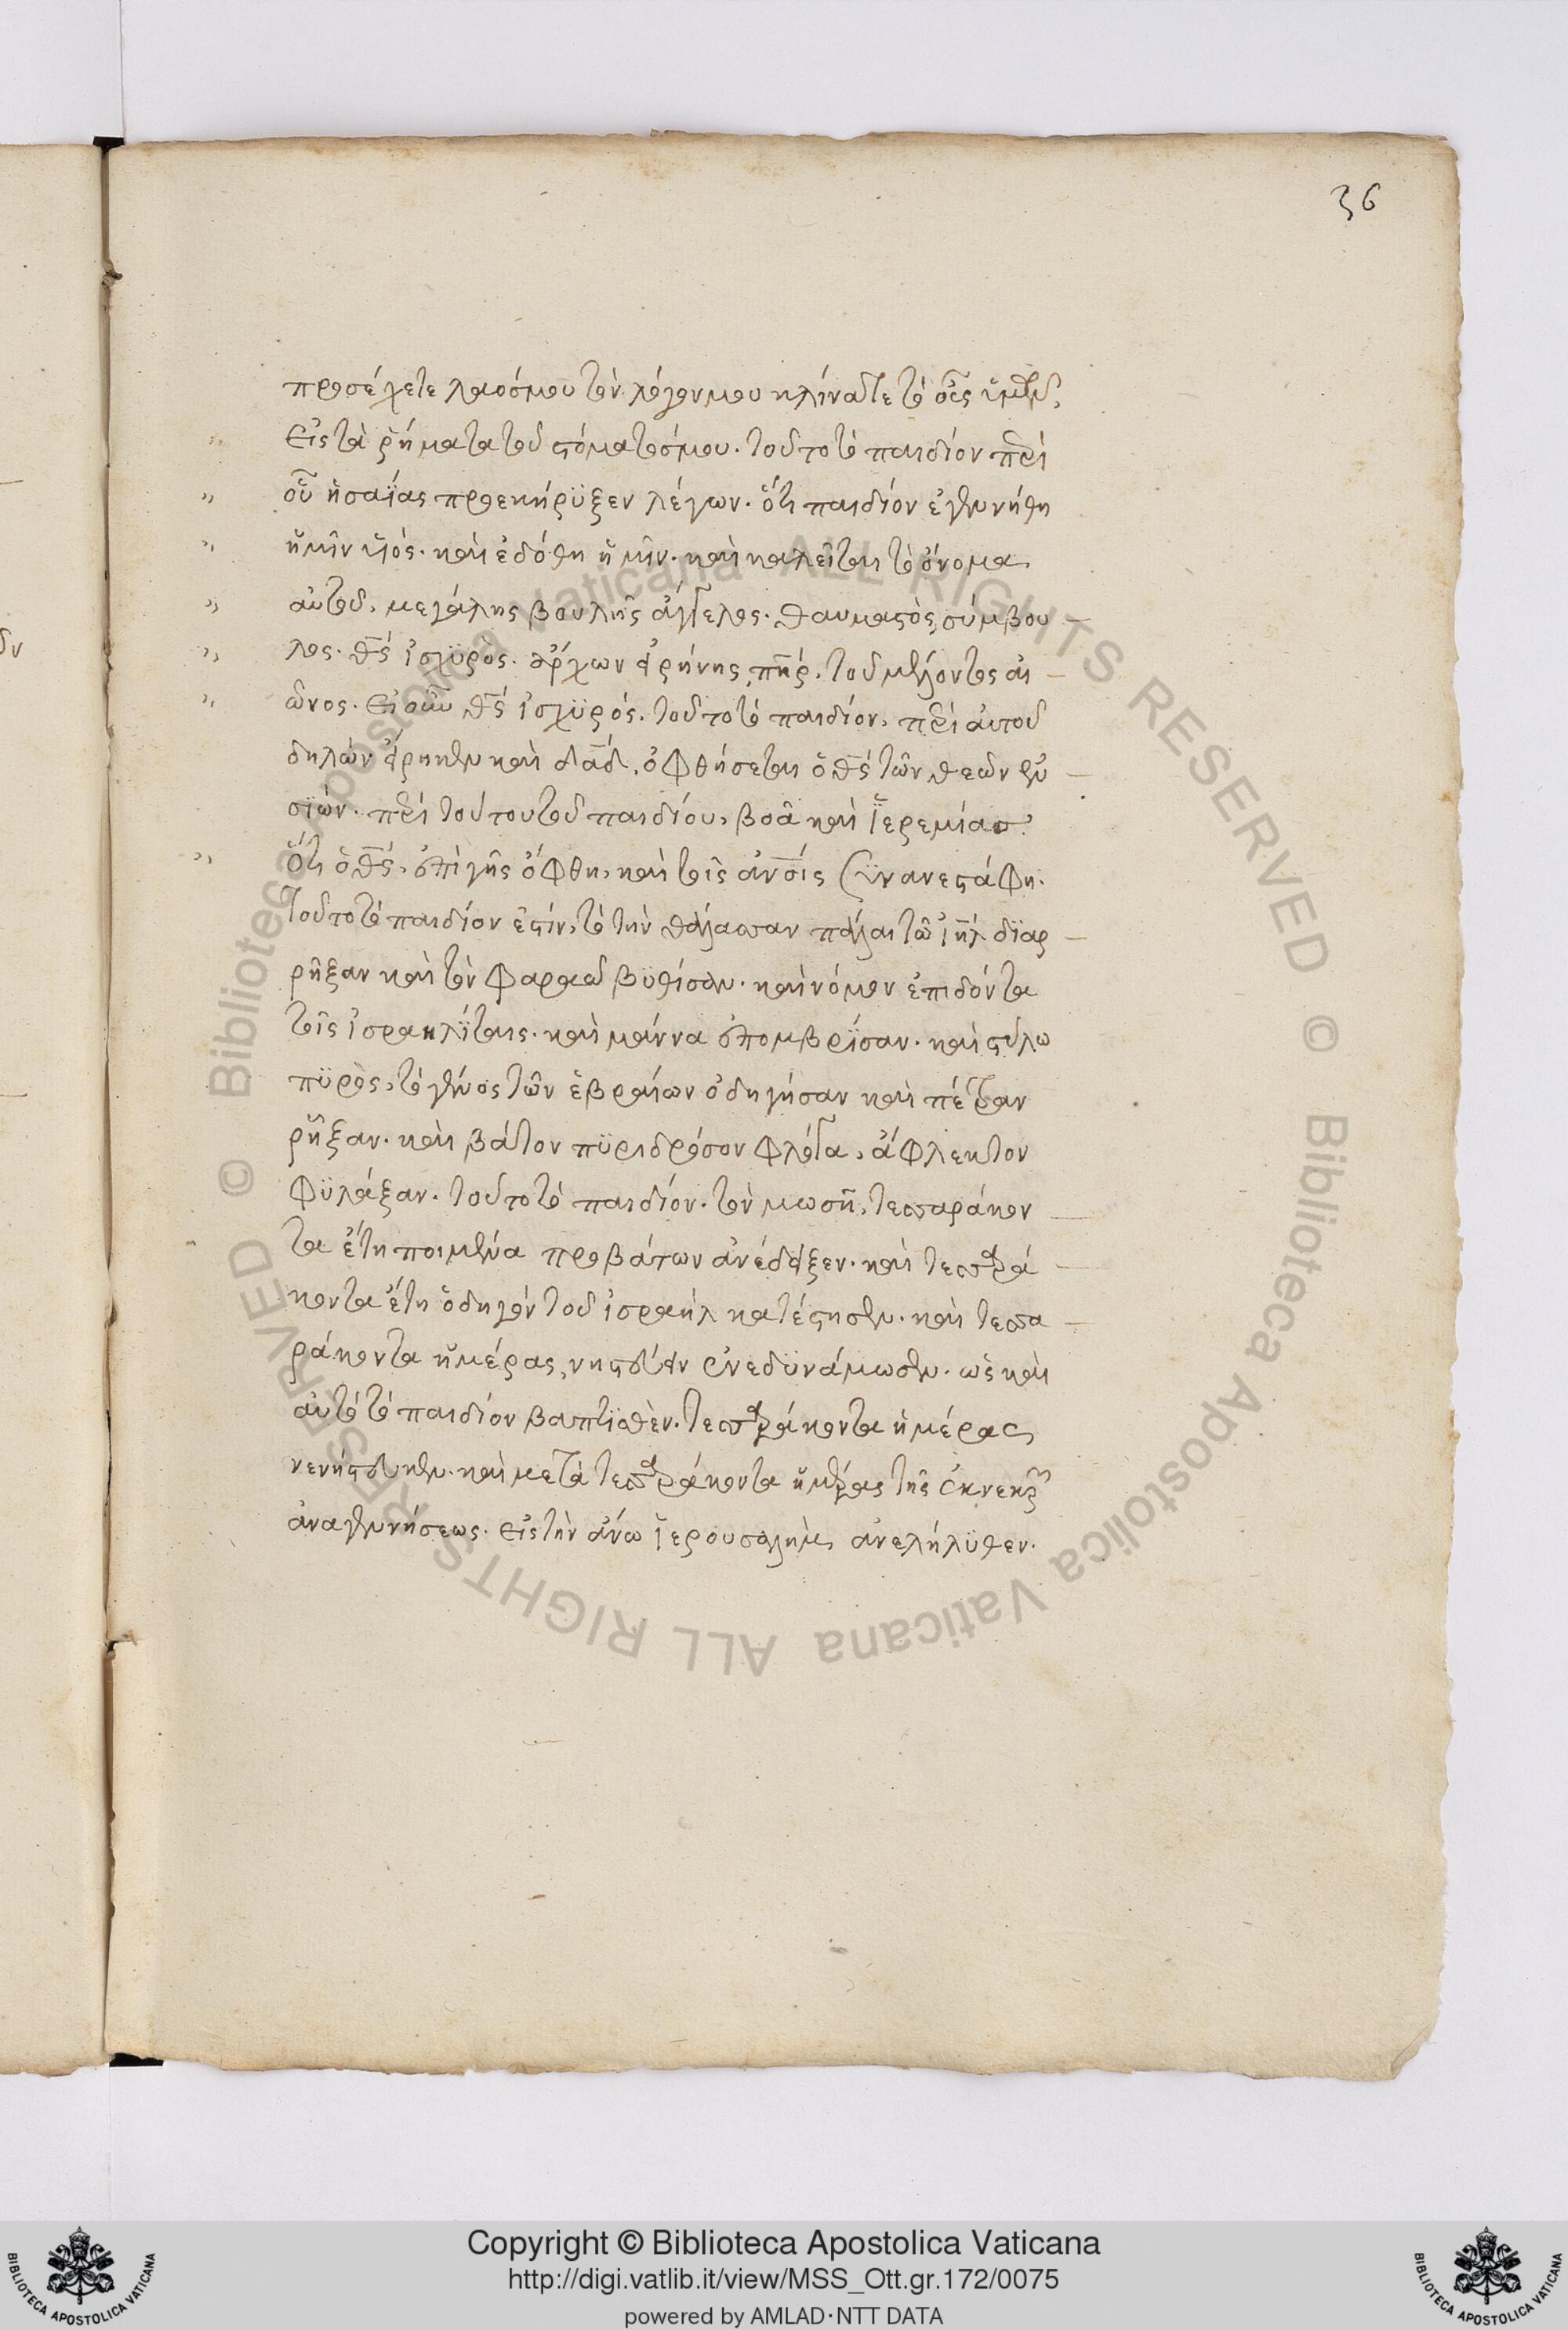 36
προσέχετε λαόσμου τὸν λόγονμου κλίνατε τὸ οὖς ὑμῶν,
Εἰς τὰ ῥήματα τοῦ στόματοσμου. τοῦτο τὸ παιδίον περὶ
οὗ ἡσαΐας προεκήρϋξεν λέγων. ὅτι παιδίον ἐγεννήθη
ἡμῖν υἱὸς. καὶ ἐδόθη ἡμῖν. καὶ καλεῖται τὸ ὄνομα
αὐτοῦ, μεγάλης βουλῆς ἄγγελος. θαυμαστὸς, σύμβου
λος. θς ἰσχϋρὸς. ἄρχων εἰρήνης, πηρ. τοῦ μέλλοντος αἰ
ῶνος. Εἰ οὖν θς ἰσχϋρός. τοῦτο τὸ παιδίον, περὶ αὐτοῦ
δηλῶν εἴρηκεν καὶ δαδ, ὀφθήσεται ὁ θς τῶν θεῶν ἐν
σϊών. περὶ τούτου τοῦ παιδίου, βοᾶ καὶ ἱερεμίας.
ὅτι ὁ θς, ἐπὶ γῆς ὤφθη, καὶ τοῖς ανοις συνανεστάφη.
Τοῦτο τὸ παιδίον ἐστίν, τὸ τὴν θάλασσαν πάλαι τῶ ιηλ δϊαρ
ρῆξαν καὶ τὸν φαραὼ βϋθίσαν. καὶ νόμον ἐπιδόντα
τοῖς ἰσραηλΐταις. καὶ μάννα ἐπομβρΐσαν. καὶ στύλω
πϋρὸς, τὸ γένος τῶν ἑβραίων ὁδηγῆσαν καὶ πέτραν
ῥῆξαν. καὶ βάτον πϋριδρόσον φλόγα, ἄφλεκτον
φϋλάξαν. τοῦτο τὸ παιδίον. τὸν μωσῆ, τεσσαράκον
τα ἔτη ποιμένα προβάτων ἀνέδειξεν. καὶ τεσσαρά
κοντα ἔτη ὁδηγὸν τοῦ ἰσραὴλ κατέστησεν. καὶ τεσσα
ράκοντα ἡμέρας, νηστεύειν ἐνεδϋνάμωσεν. ὡς καὶ
αὐτὸ τὸ παιδίον βαπτϊσθὲν. τεσσαράκοντα ἡμέρας
νενήστευκεν. καὶ μετὰ τεσσαράκοντα ἡμέρας τῆς ἐκ νεκρῶν
ἀναγεννήσεως. εἰς τὴν ἄνω ἱερουσαλὴμ, ἀνελήλϋθεν.
© Biblioteca Apostolica Vaticana ALL RIGHTS RESERVED
© Biblioteca Apostolica Vaticana ALL RIGHTS RESERVED
Copyright © Biblioteca Apostolica Vaticana
http://digi.vatlib.it/view/MSS_Ott.gr.172/0075
powered by AMLAD·NTT DATA
BIBLIOTECA APOSTOLICA VATICANA
BIBLIOTECA APOSTOLICA VATICANA